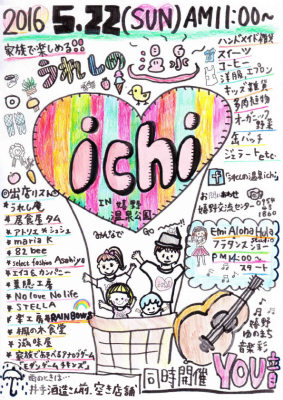 2016 5.22(SUN)AM11:00~
家族で楽しめる!!
うれしの温泉
ichi
IN 嬉野温泉公園
みんなで
GO
ハンドメイド雑貨
スイーツ
コーヒー
洋服 エプロン
キッズ雑貨
多肉植物
オーガニック
野菜
缶バッチ
ジェラート etc.
うれしの温泉ichi
お問い合わせ
嬉野交流センター
出店リスト
うれし庵
居食屋 タム
アトリエ
maria K
82 bee
select fashion Asahiya
エイコ&カンパニー
No love No life
STELLA
RAINBOWS
楓の木食堂
滋味屋
家族であそべるアナログゲーム
モダンゲームチキンズ
雨のときは…
井手酒造さん前、空き店舗
Emi Aloha Hula
Studio
フラダンスショー
PM14:00~
スタート
同時開催
嬉野
ゆのまち
音楽彩
YOU音